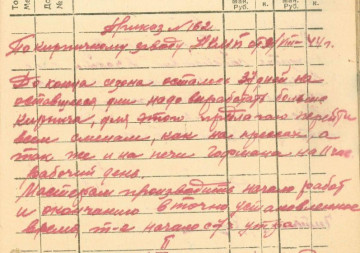 Приказ № 162
По кирпичному заводу от 9/VIII-44 г.
До конца сезона осталось 32 дней на
оставшиеся дни надо выработать больше
кирпича, для этого предлагаю перейти
всем сменам, как на прессах а
так же и на печи Гофмана на 11 час.
рабочий день.
Мастерам производить начало работ
и окончанию в точно установленное
время, т.е. начало с утра